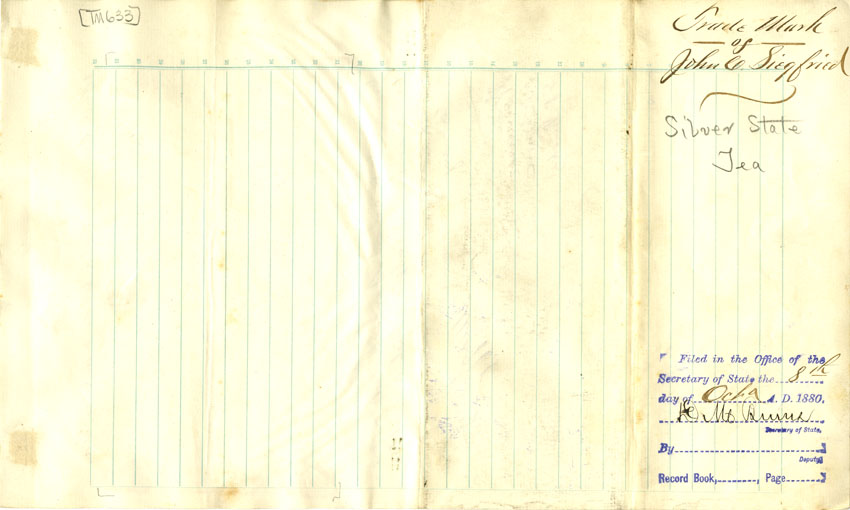 [TM633]
Trade Mark
of
John C. Siegfried
Silver State
Tea
Filed in the Office of the
Secretary of State the 8th
day of Oct A. D. 1880,
D. M. Burns
Secretary of State,
By
Deputy
Record Book, , Page